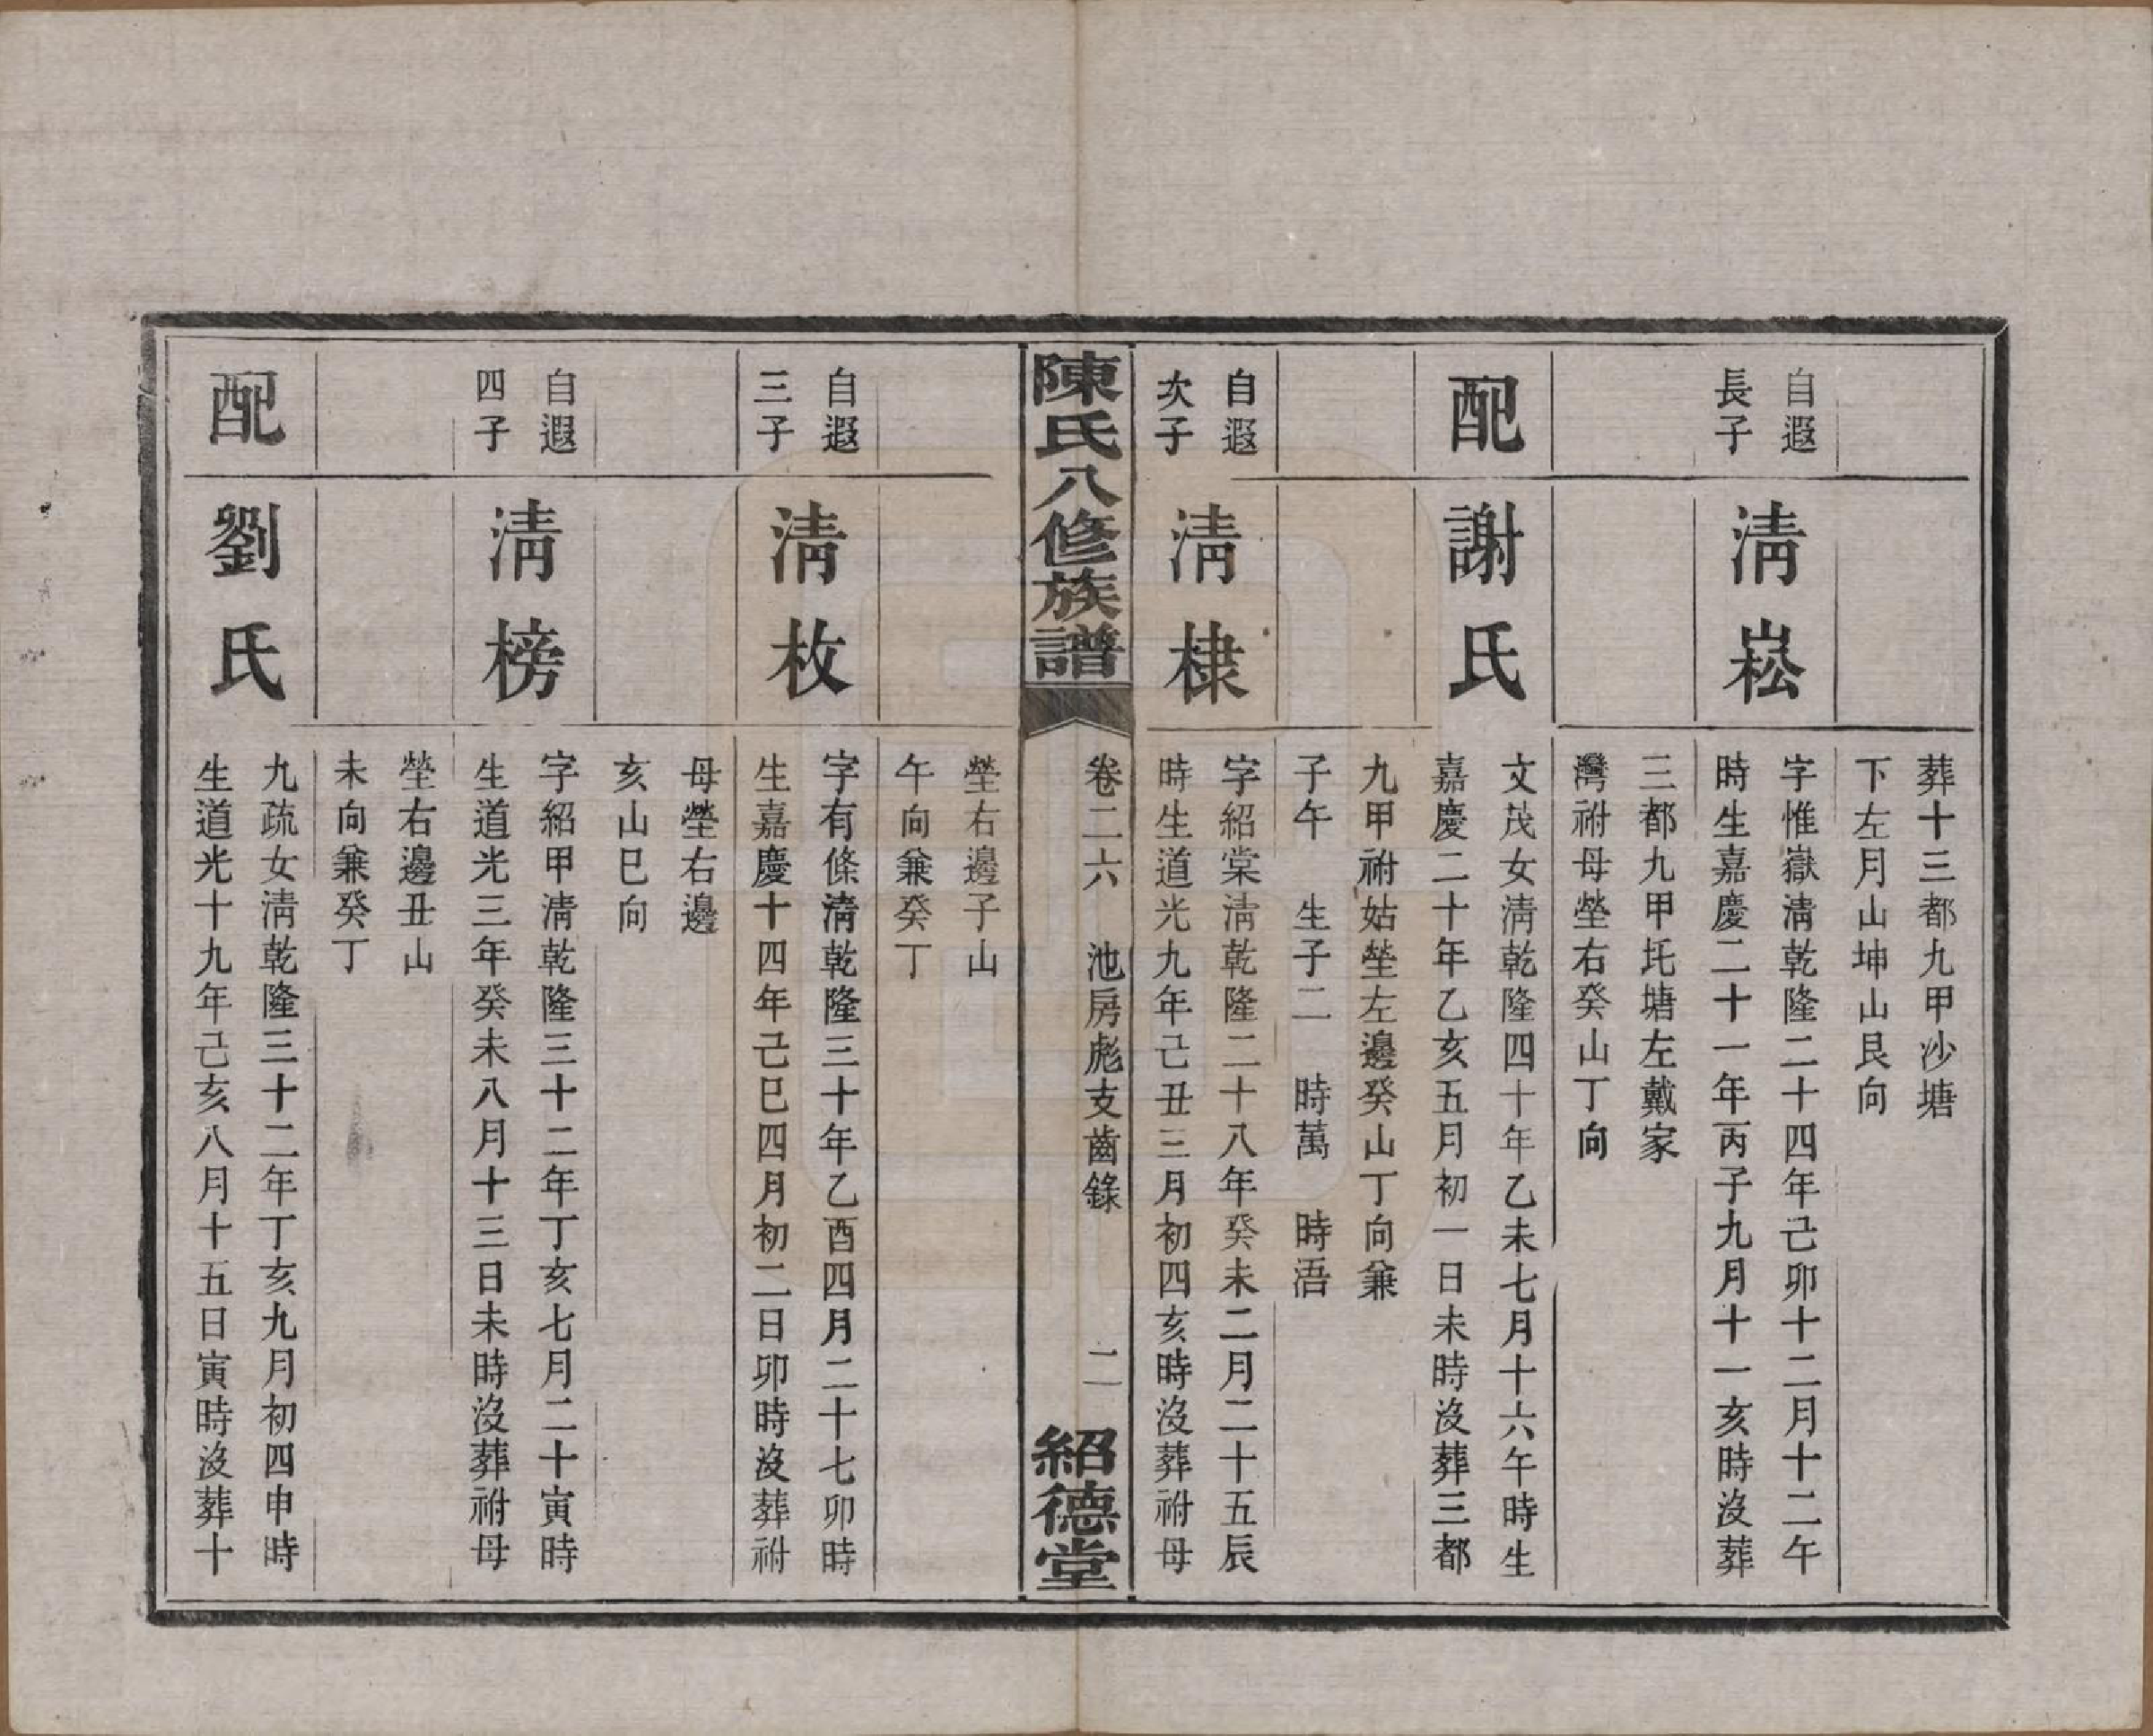 葬十三都九甲沙塘
下左月山坤山艮向
自遐
長子
淸崧
字惟嶽淸乾隆二十四年己卯十二月十二午
時生嘉慶二十一年丙子九月十一亥時沒葬
三都九甲圫塘左戴家
灣祔母塋右癸山丁向
配
謝氏
文茂女淸乾隆四十年乙未七月十六午時生
嘉慶二十年乙亥五月初一日未時沒葬三都
九甲祔姑塋左邊癸山丁向兼
子午 生子二 時萬 時浯
自遐
次子
淸棣
字紹棠淸乾隆二十八年癸未二月二十五辰
時生道光九年己丑三月初四亥時沒葬祔母
陳氏八修族譜
卷二六 池房彪支齒錄
二
紹德堂
塋右邊子山
午向兼癸丁
自遐
三子
淸枚
字有條淸乾隆三十年乙酉四月二十七卯時
生嘉慶十四年己巳四月初二日卯時沒葬祔
母塋右邊
亥山巳向
自遐
四子
淸榜
字紹甲淸乾隆三十二年丁亥七月二十寅時
生道光三年癸未八月十三日未時沒葬祔母
塋右邊丑山
未向兼癸丁
配
劉氏
九疏女淸乾隆三十二年丁亥九月初四申時
生道光十九年己亥八月十五日寅時沒葬十